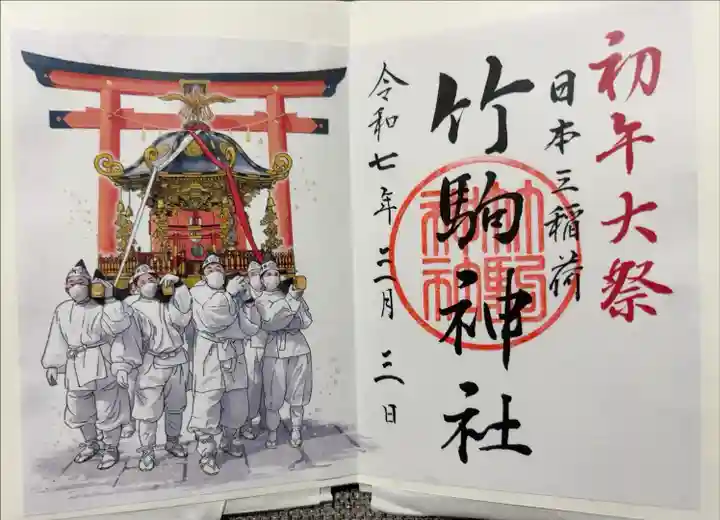 初午大祭
日本三稲荷
竹駒神社
竹駒
神社
令和七年三月三日